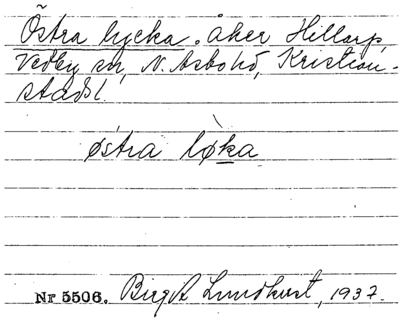 Östra lycka. åker Hillarp,
Vedby sn, N. Åsbo hd, Kristian-
stads l.
østra lø̀ka
Nr 5506. Birgit Lundkvist, 1937.